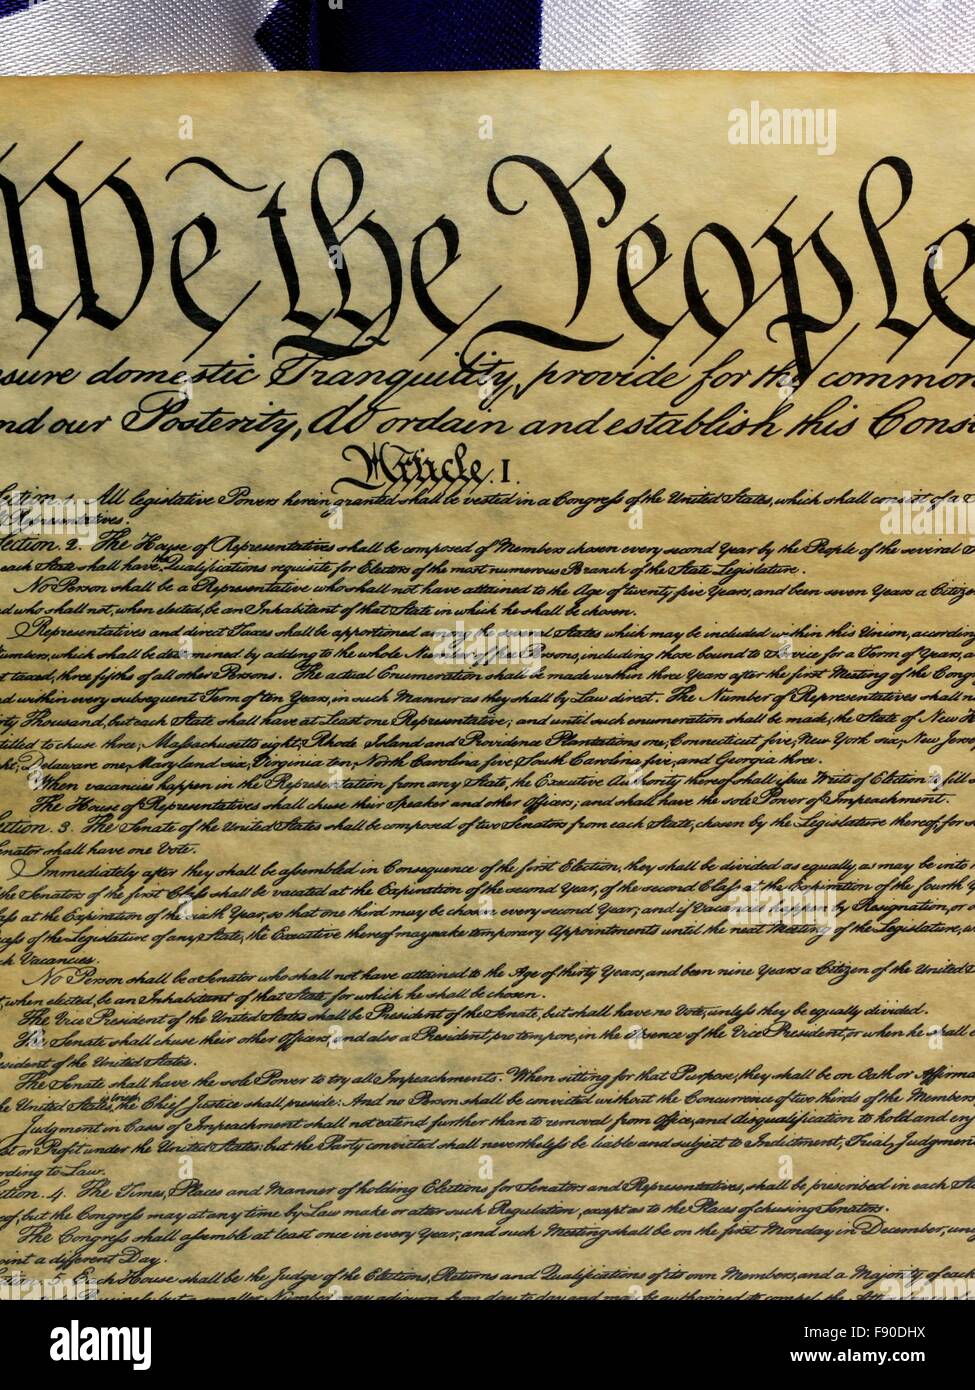 We the People
nsure domestic Tranquility, provide for the common
nd our Posterity, do ordain and establish this Cons
Article. I.
Section. 1. All legislative Powers herein granted shall be vested in a Congress of the United States, which shall consist of a
Representatives.
Section. 2. The House of Representatives shall be composed of Members chosen every second Year by the People of the several
each State shall have the Qualifications requisite for Electors of the most numerous Branch of the State Legislature.
No Person shall be a Representative who shall not have attained to the Age of twenty five Years, and been seven Years a Citizen
d who shall not, when elected, be an Inhabitant of that State in which he shall be chosen.
Representatives and direct Taxes shall be apportioned among the several States which may be included within this Union, according
umbers, which shall be determined by adding to the whole Number of free Persons, including those bound to Service for a Term of Years, a
t taxed, three fifths of all other Persons. The actual Enumeration shall be made within three Years after the first Meeting of the Congr
d within every subsequent Term of ten Years, in such Manner as they shall by Law direct. The Number of Representatives shall n
rty Thousand, but each State shall have at Least one Representative; and until such enumeration shall be made, the State of New H
titled to chuse three, Massachusetts eight, Rhode Island and Providence Plantations one, Connecticut five, New York six, New Jersey
ght, Delaware one, Maryland six, Virginia ten, North Carolina five, South Carolina five, and Georgia three.
When vacancies happen in the Representation from any State, the Executive Authority thereof shall issue Writs of Election to fill s
The House of Representatives shall chuse their Speaker and other Officers; and shall have the sole Power of Impeachment.
ection. 3. The Senate of the United States shall be composed of two Senators from each State, chosen by the Legislature thereof, for s
enator shall have one Vote.
Immediately after they shall be assembled in Consequence of the first Election, they shall be divided as equally as may be into
the Senators of the first Class shall be vacated at the Expiration of the second Year, of the second Class at the Expiration of the fourth Y
ass at the Expiration of the sixth Year, so that one third may be chosen every second Year; and if Vacancies happen by Resignation, or o
ecess of the Legislature of any State, the Executive thereof may make temporary Appointments until the next Meeting of the Legislature, w
ch Vacancies.
No Person shall be a Senator who shall not have attained to the Age of thirty Years, and been nine Years a Citizen of the United
t, when elected, be an Inhabitant of that State for which he shall be chosen.
The Vice President of the United States shall be President of the Senate, but shall have no Vote, unless they be equally divided.
The Senate shall chuse their other Officers, and also a President pro tempore, in the Absence of the Vice President, or when he shall
resident of the United States.
The Senate shall have the sole Power to try all Impeachments. When sitting for that Purpose, they shall be on Oath or Affirma
he United States is tried, the Chief Justice shall preside: And no Person shall be convicted without the Concurrence of two thirds of the Members
Judgment in Cases of Impeachment shall not extend further than to removal from Office, and disqualification to hold and enj
st or Profit under the United States: but the Party convicted shall nevertheless be liable and subject to Indictment, Trial, Judgment
ording to Law.
ction. 4. The Times, Places and Manner of holding Elections for Senators and Representatives, shall be prescribed in each Sta
eof, but the Congress may at any time by Law make or alter such Regulation, except as to the Places of chusing Senators.
The Congress shall assemble at least once in every Year, and such Meeting shall be on the first Monday in December, unl
oint a different Day.
ection. 5. Each House shall be the Judge of the Elections, Returns and Qualifications of its own Members, and a Majority of each
Business; but a smaller Number may adjourn from day to day, and may be authorized to compel the
alamy
Image ID: F90DHX
www.alamy.com